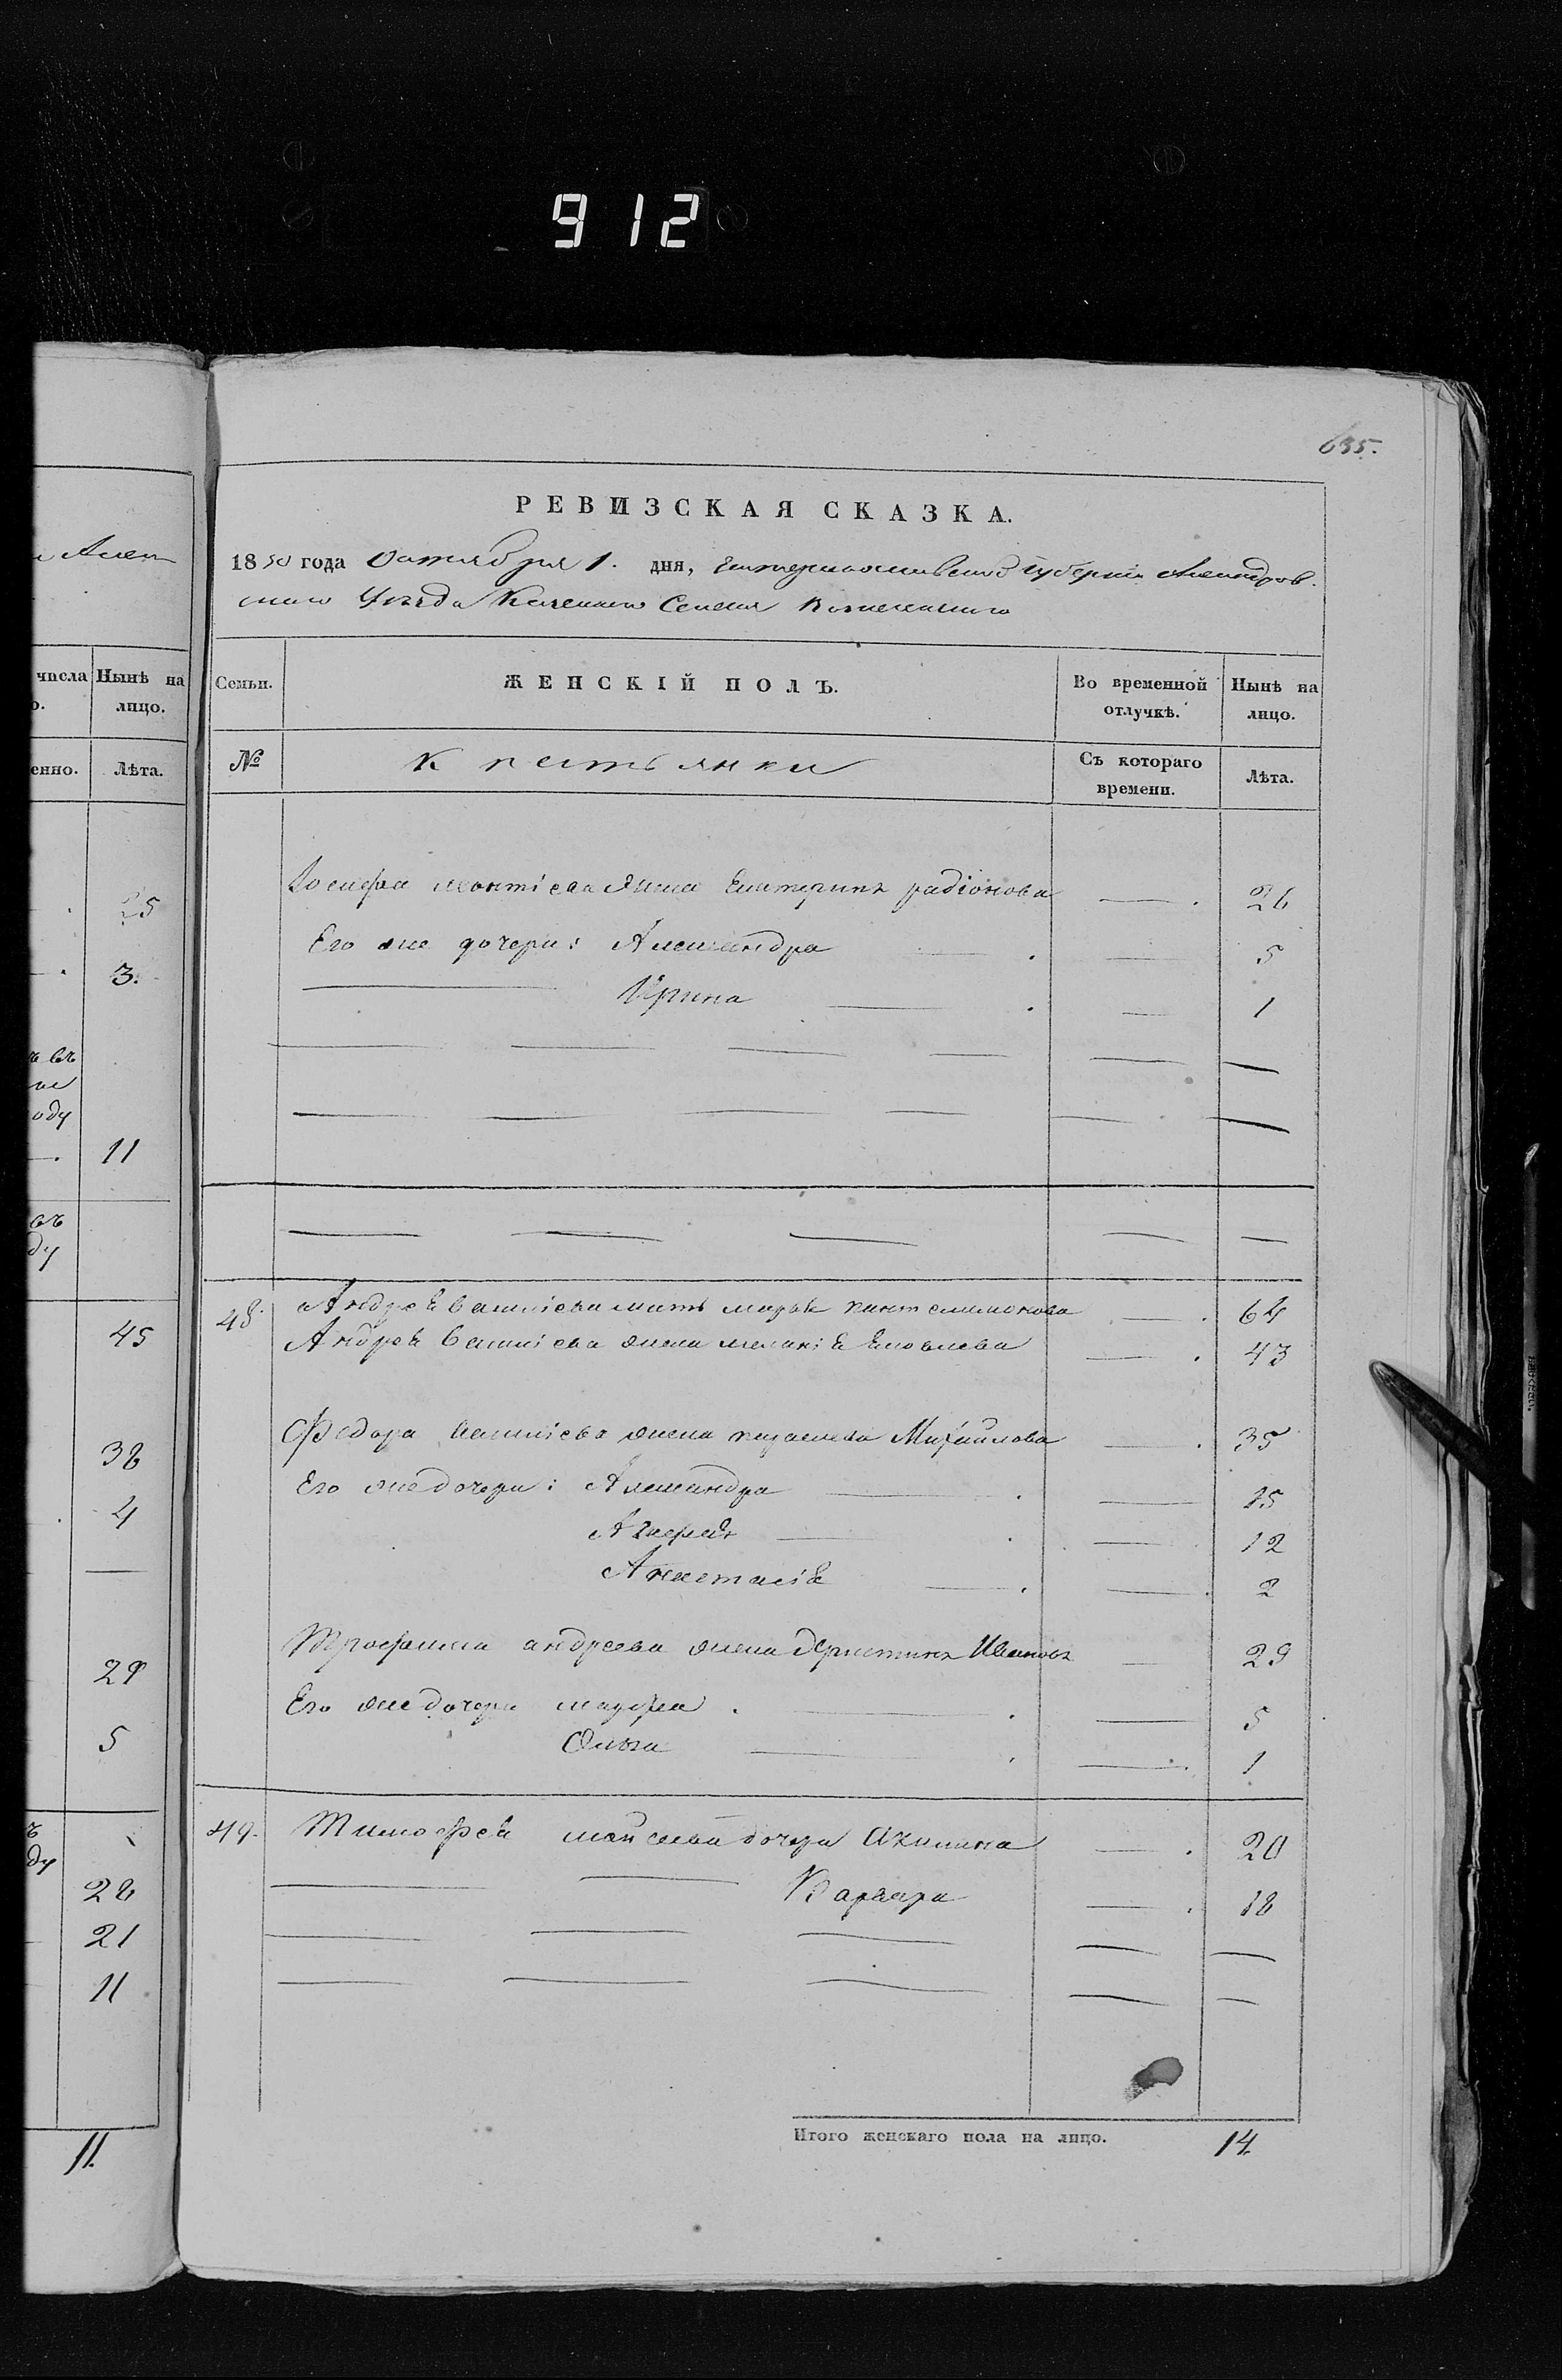 912
635.
РЕВИЗСКАЯ СКАЗКА.
1850 года Октября 1. дня, Екатеринославской губернии Александров-
скаго Уѣзда Казеннаго Селения
числа Нынѣ на лицо.
Лѣта.
25
3.
11
45
38
4
29
5
28
21
11
11.
Семьи. ЖЕНСКІЙ ПОЛЪ. Во временной отлучкѣ. Нынѣ на лицо.
№ Крестьянки Съ котораго времени. Лѣта.
Иосифа леонтіева жена Екатерина радіонова — 26
Его же дочери: Александра — 5
Ирина — 1
48. Андрея василіева мать марья пантелимонова — 64
Андрея василіева жена меланія Яковлева — 43
Федора василіева жена параскева Михайлова — 35
Его же дочери: Александра — 15
Агафія — 12
Анастасія — 2
Трофима андреева жена Христина Иванова — 29
Его же дочери марфа — 5
Ольга — 1
49. Тимофея моисеева дочери Акилина — 20
Варвара — 18
Итого женскаго пола на лицо. 14.